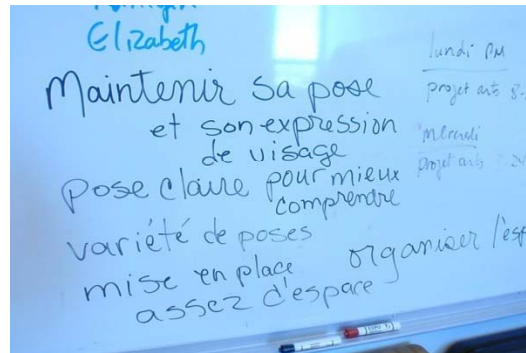 Elizabeth
Maintenir sa pose
et son expression
de visage
pose claire pour mieux
comprendre
variété de poses
mise en place
assez d'espace
organiser l'esp
lundi PM
projet arts 8-
mercredi
projet arts